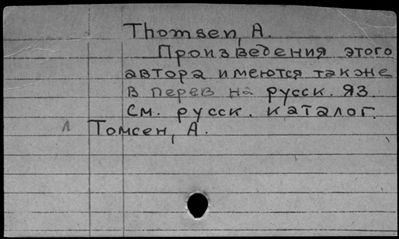 Thomsen, A.
Произведения этого
автора имеются также
в перев на русск. яз.
См. русск. каталог.
л Томсен, А.